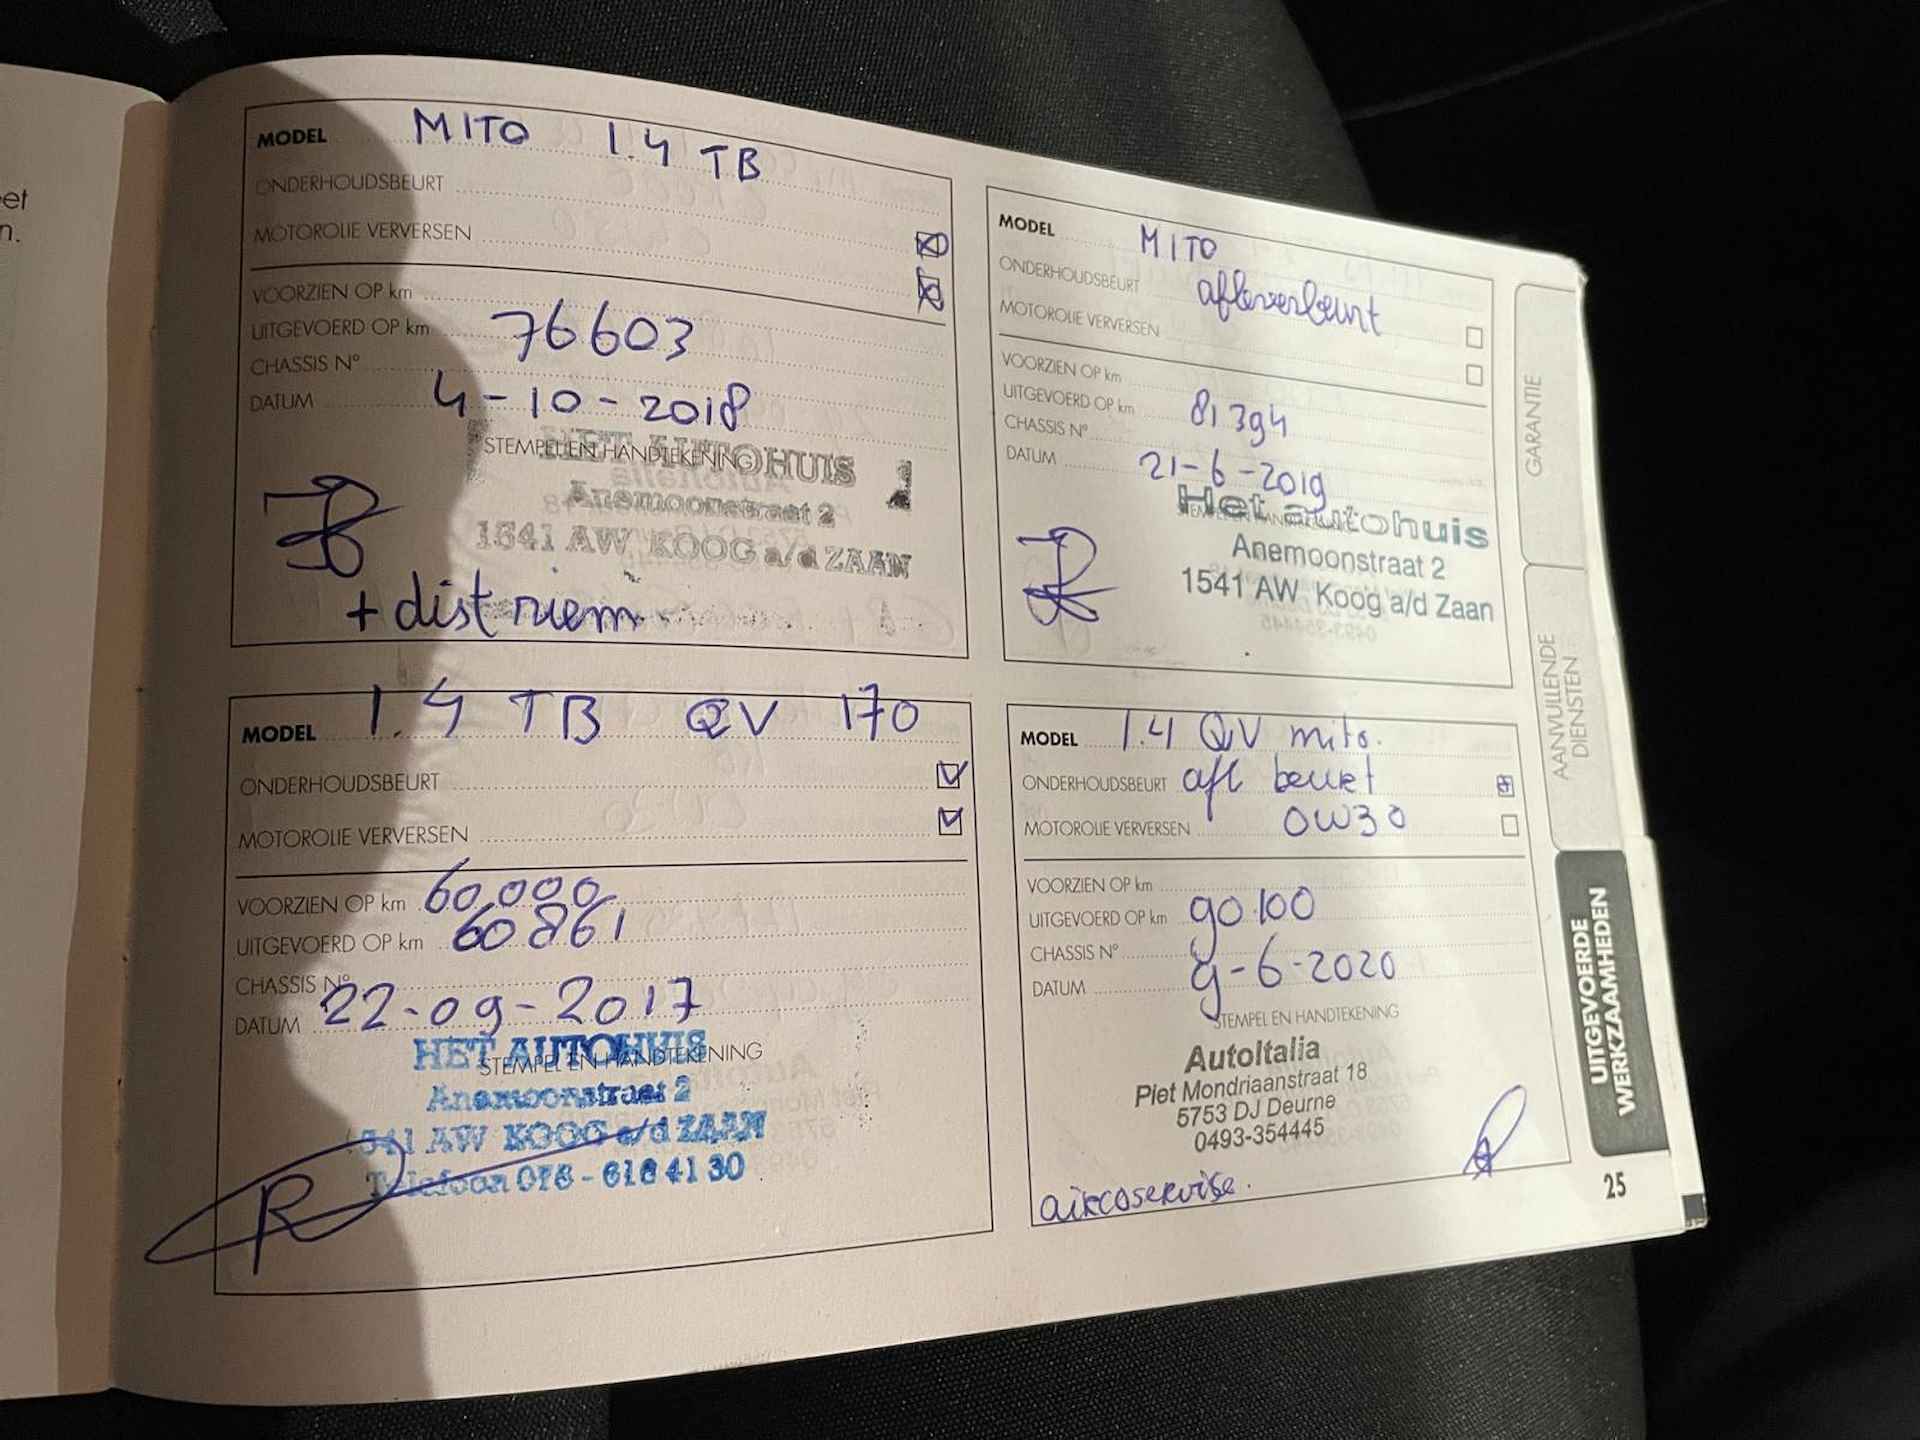 eet
n.
MODEL MITO 1.4 TB
ONDERHOUDSBEURT
MOTOROLIE VERVERSEN
VOORZIEN OP km
UITGEVOERD OP km 76603
CHASSIS N°
DATUM 4-10-2018
STEMPEL EN HANDTEKENING
HET AUTOHUIS
Anemoonstraat 2
1541 AW KOOG a/d ZAAN
+ dist riem
MODEL MITO
ONDERHOUDSBEURT afleverbeurt
MOTOROLIE VERVERSEN
VOORZIEN OP km
UITGEVOERD OP km 81394
CHASSIS N°
DATUM 21-6-2019
Het autohuis
Anemoonstraat 2
1541 AW Koog a/d Zaan
MODEL 1.4 TB QV 170
ONDERHOUDSBEURT
MOTOROLIE VERVERSEN
VOORZIEN OP km 60.000
UITGEVOERD OP km 60861
CHASSIS N°
DATUM 22-09-2017
STEMPEL EN HANDTEKENING
HET AUTOHUIS
Anemoonstraat 2
1541 AW KOOG a/d ZAAN
Telefoon 075 - 616 41 30
MODEL 1.4 QV mito.
ONDERHOUDSBEURT afl beurt
MOTOROLIE VERVERSEN 0W30
VOORZIEN OP km
UITGEVOERD OP km 90.100
CHASSIS N°
DATUM 9-6-2020
STEMPEL EN HANDTEKENING
AutoItalia
Piet Mondriaanstraat 18
5753 DJ Deurne
0493-354445
aircoservise.
GARANTIE
AANVULLENDE
DIENSTEN
UITGEVOERDE
WERKZAAMHEDEN
25